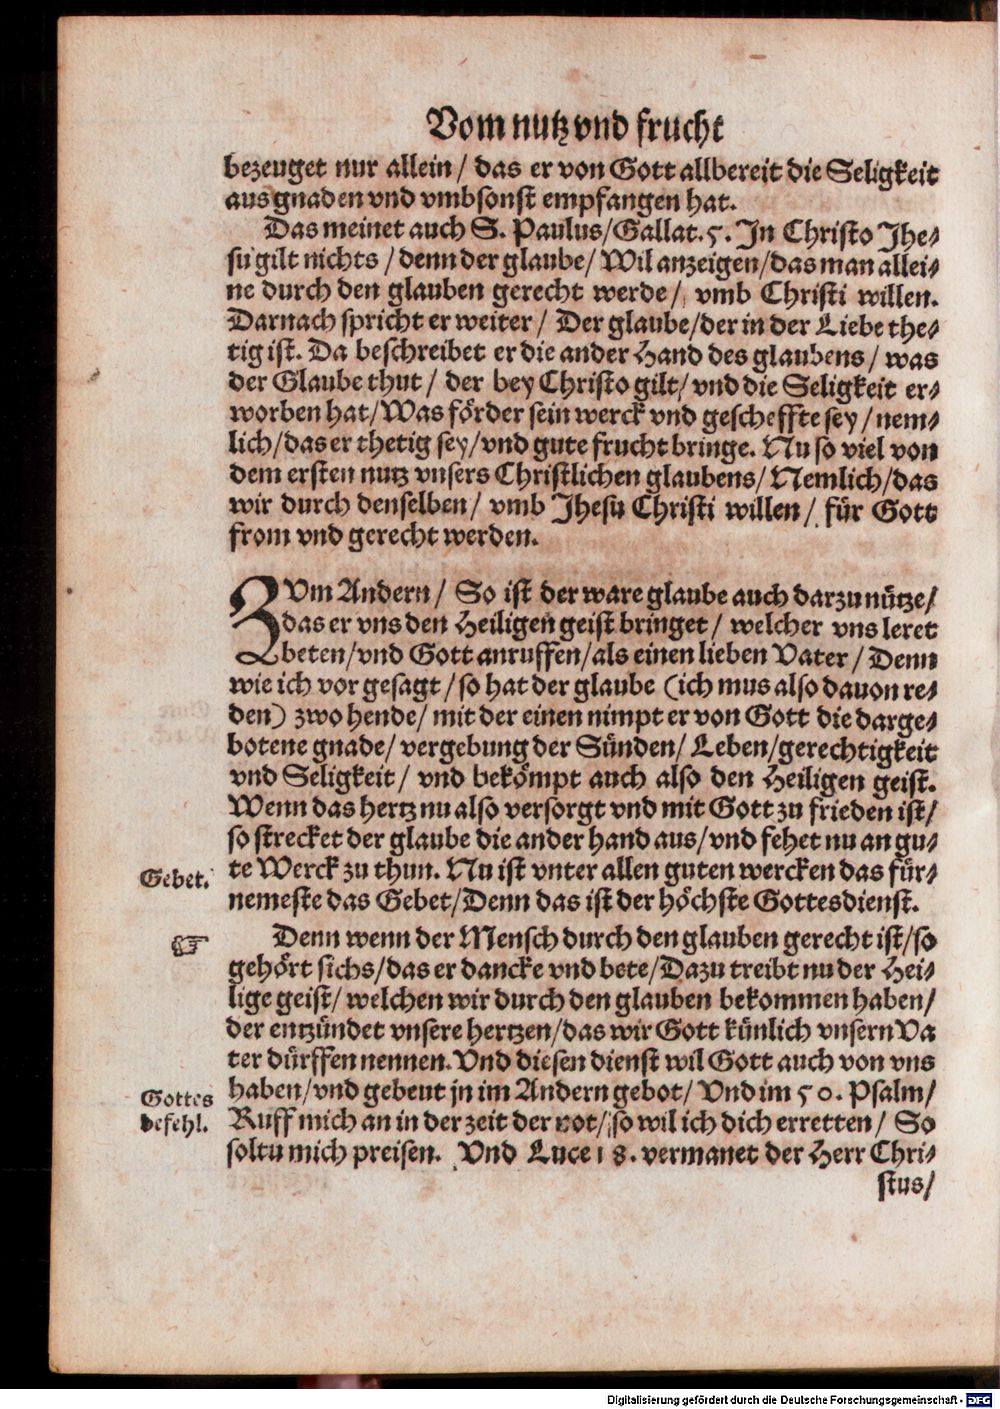 Vom nutz vnd frucht
bezeuget nur allein / das er von Gott allbereit die Seligkeit
aus gnaden vnd vmbsonst empfangen hat.
Das meinet auch S. Paulus/Gallat.5. In Christo Jhe⸗
su gilt nichts / denn der glaube/ Wil anzeigen/das man allei⸗
ne durch den glauben gerecht werde/ vmb Christi willen.
Darnach spricht er weiter / Der glaube/der in der Liebe the⸗
tig ist. Da beschreibet er die ander Hand des glaubens / was
der Glaube thut / der bey Christo gilt/ vnd die Seligkeit er⸗
worben hat/Was förder sein werck vnd gescheffte sey / nem⸗
lich/das er thetig sey/vnd gute frucht bringe. Nu so viel von
dem ersten nutz vnsers Christlichen glaubens/ Nemlich/das
wir durch denselben/ vmb Jhesu Christi willen/ für Gott
from vnd gerecht werden.
ZVm Andern/ So ist der ware glaube auch darzu nütze/
das er vns den Heiligen geist bringet / welcher vns leret
beten/vnd Gott anruffen/als einen lieben Vater / Denn
wie ich vor gesagt /so hat der glaube (ich mus also dauon re⸗
den) zwo hende/ mit der einen nimpt er von Gott die darge⸗
botene gnade/ vergebung der Sünden/ Leben/gerechtigkeit
vnd Seligkeit/ vnd bekömpt auch also den Heiligen geist.
Wenn das hertz nu also versorgt vnd mit Gott zu frieden ist/
so strecket der glaube die ander hand aus/vnd fehet nu an gu⸗
Gebet. te Werck zu thun. Nu ist vnter allen guten wercken das für⸗
nemeste das Gebet/Denn das ist der höchste Gottesdienst.
☞ Denn wenn der Mensch durch den glauben gerecht ist/so
gehört sichs/das er dancke vnd bete/Dazu treibt nu der Hei⸗
lige geist/ welchen wir durch den glauben bekommen haben/
der entzündet vnsere hertzen/das wir Gott künlich vnsern Va
ter dürffen nennen. Vnd diesen dienst wil Gott auch von vns
Gottes haben/vnd gebeut jn im Andern gebot/ Vnd im 50. Psalm/
befehl. Ruff mich an in der zeit der not/ so wil ich dich erretten/ So
soltu mich preisen. Vnd Luce 18. vermanet der Herr Chri⸗
stus/
Digitalisierung gefördert durch die Deutsche Forschungsgemeinschaft - DFG